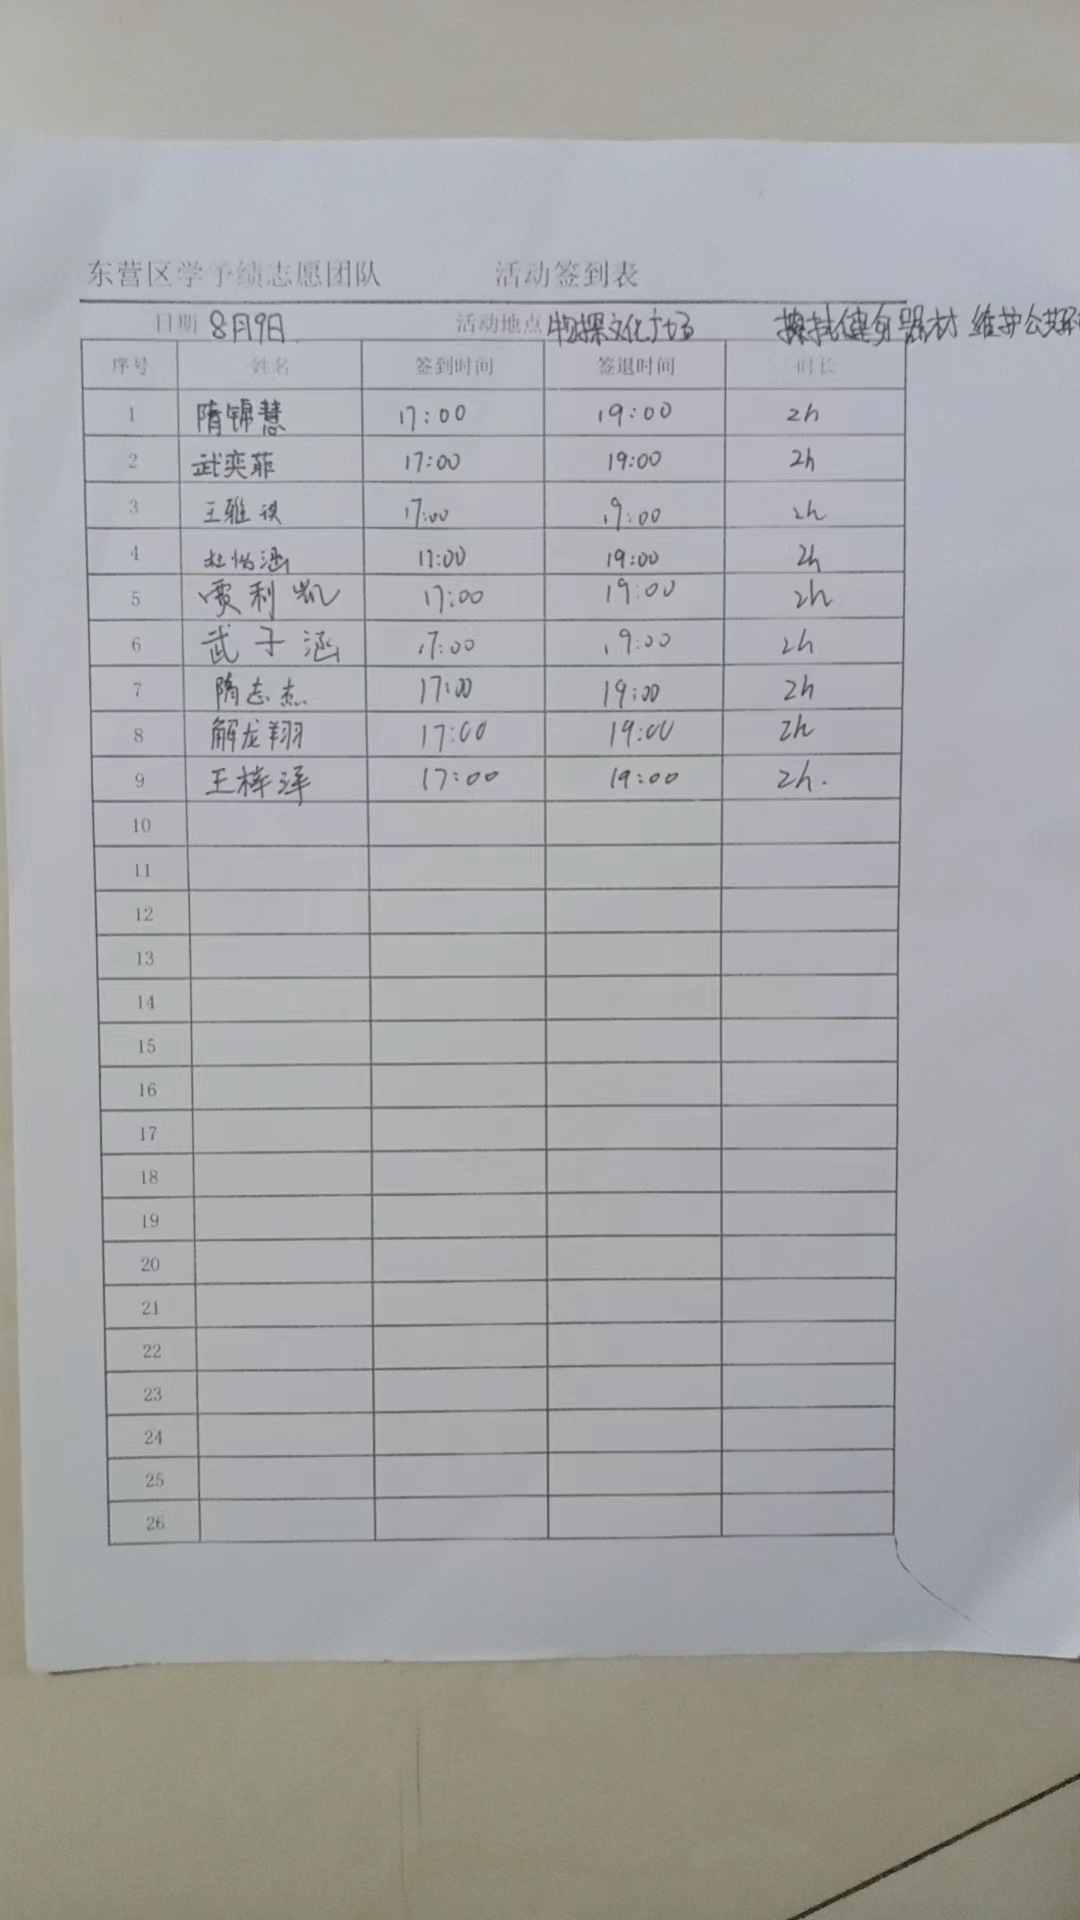 东营区学予绩志愿团队 活动签到表
日期 8月9日 活动地点 物探文化广场 擦拭健身器材 维护公共环
序号 姓名 签到时间 签退时间 时长
1 隋锦慧 17:00 19:00 2h
2 武奕菲 17:00 19:00 2h
3 王雅祺 17:00 19:00 2h
4 杜怡涵 17:00 19:00 2h
5 贾利凯 17:00 19:00 2h
6 武子涵 17:00 19:00 2h
7 隋志杰 17:00 19:00 2h
8 解龙翔 17:00 19:00 2h
9 王梓泽 17:00 19:00 2h.
10
11
12
13
14
15
16
17
18
19
20
21
22
23
24
25
26